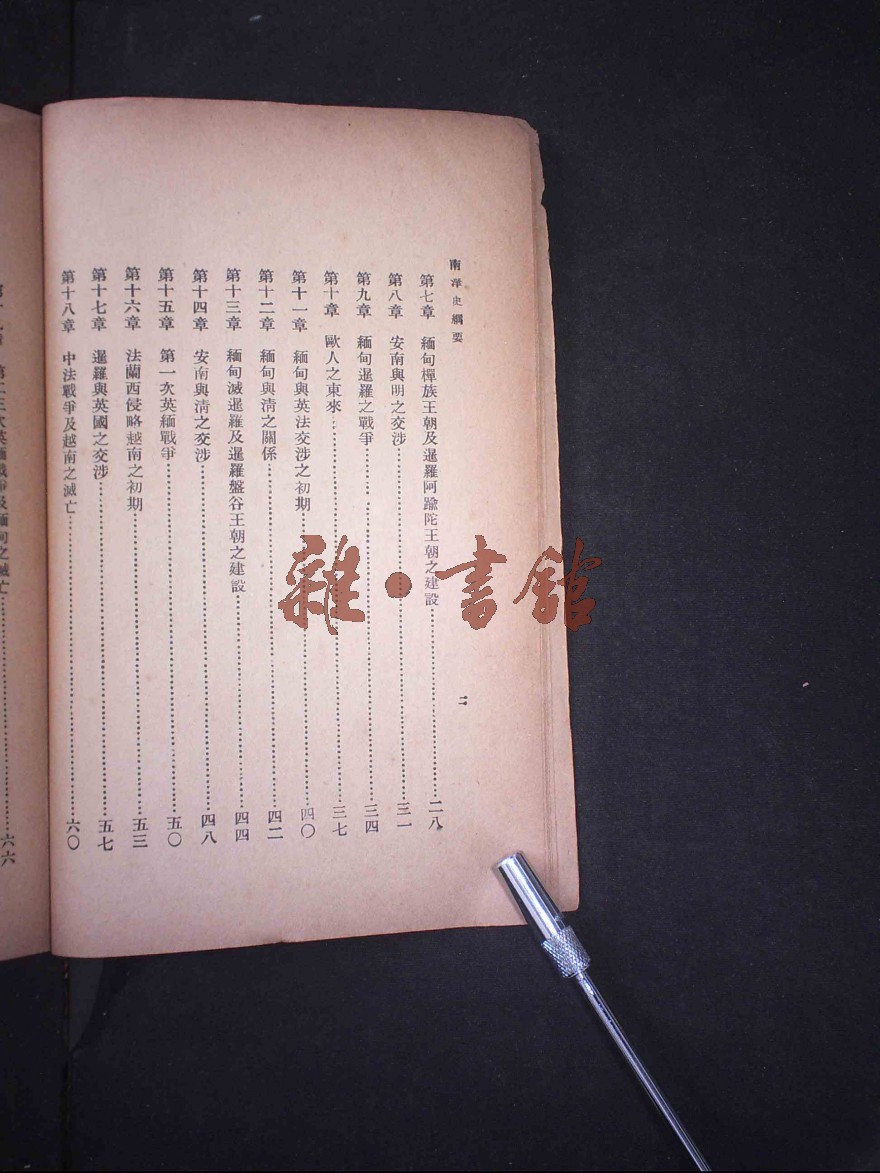 南洋史綱要
二
第七章 緬甸樿族王朝及暹羅阿踰陀王朝之建設……二八
第八章 安南與明之交涉……三一
第九章 緬甸暹羅之戰爭……三四
第十章 歐人之東來……三七
第十一章 緬甸與英法交涉之初期……四〇
第十二章 緬甸與淸之關係……四二
第十三章 緬甸滅暹羅及暹羅盤谷王朝之建設……四四
第十四章 安南與淸之交涉……四八
第十五章 第一次英緬戰爭……五〇
第十六章 法蘭西侵略越南之初期……五三
第十七章 暹羅與英國之交涉……五七
第十八章 中法戰爭及越南之滅亡……六〇
第十九章 第二三次英緬戰爭及緬甸之滅亡……六六
雜·書館